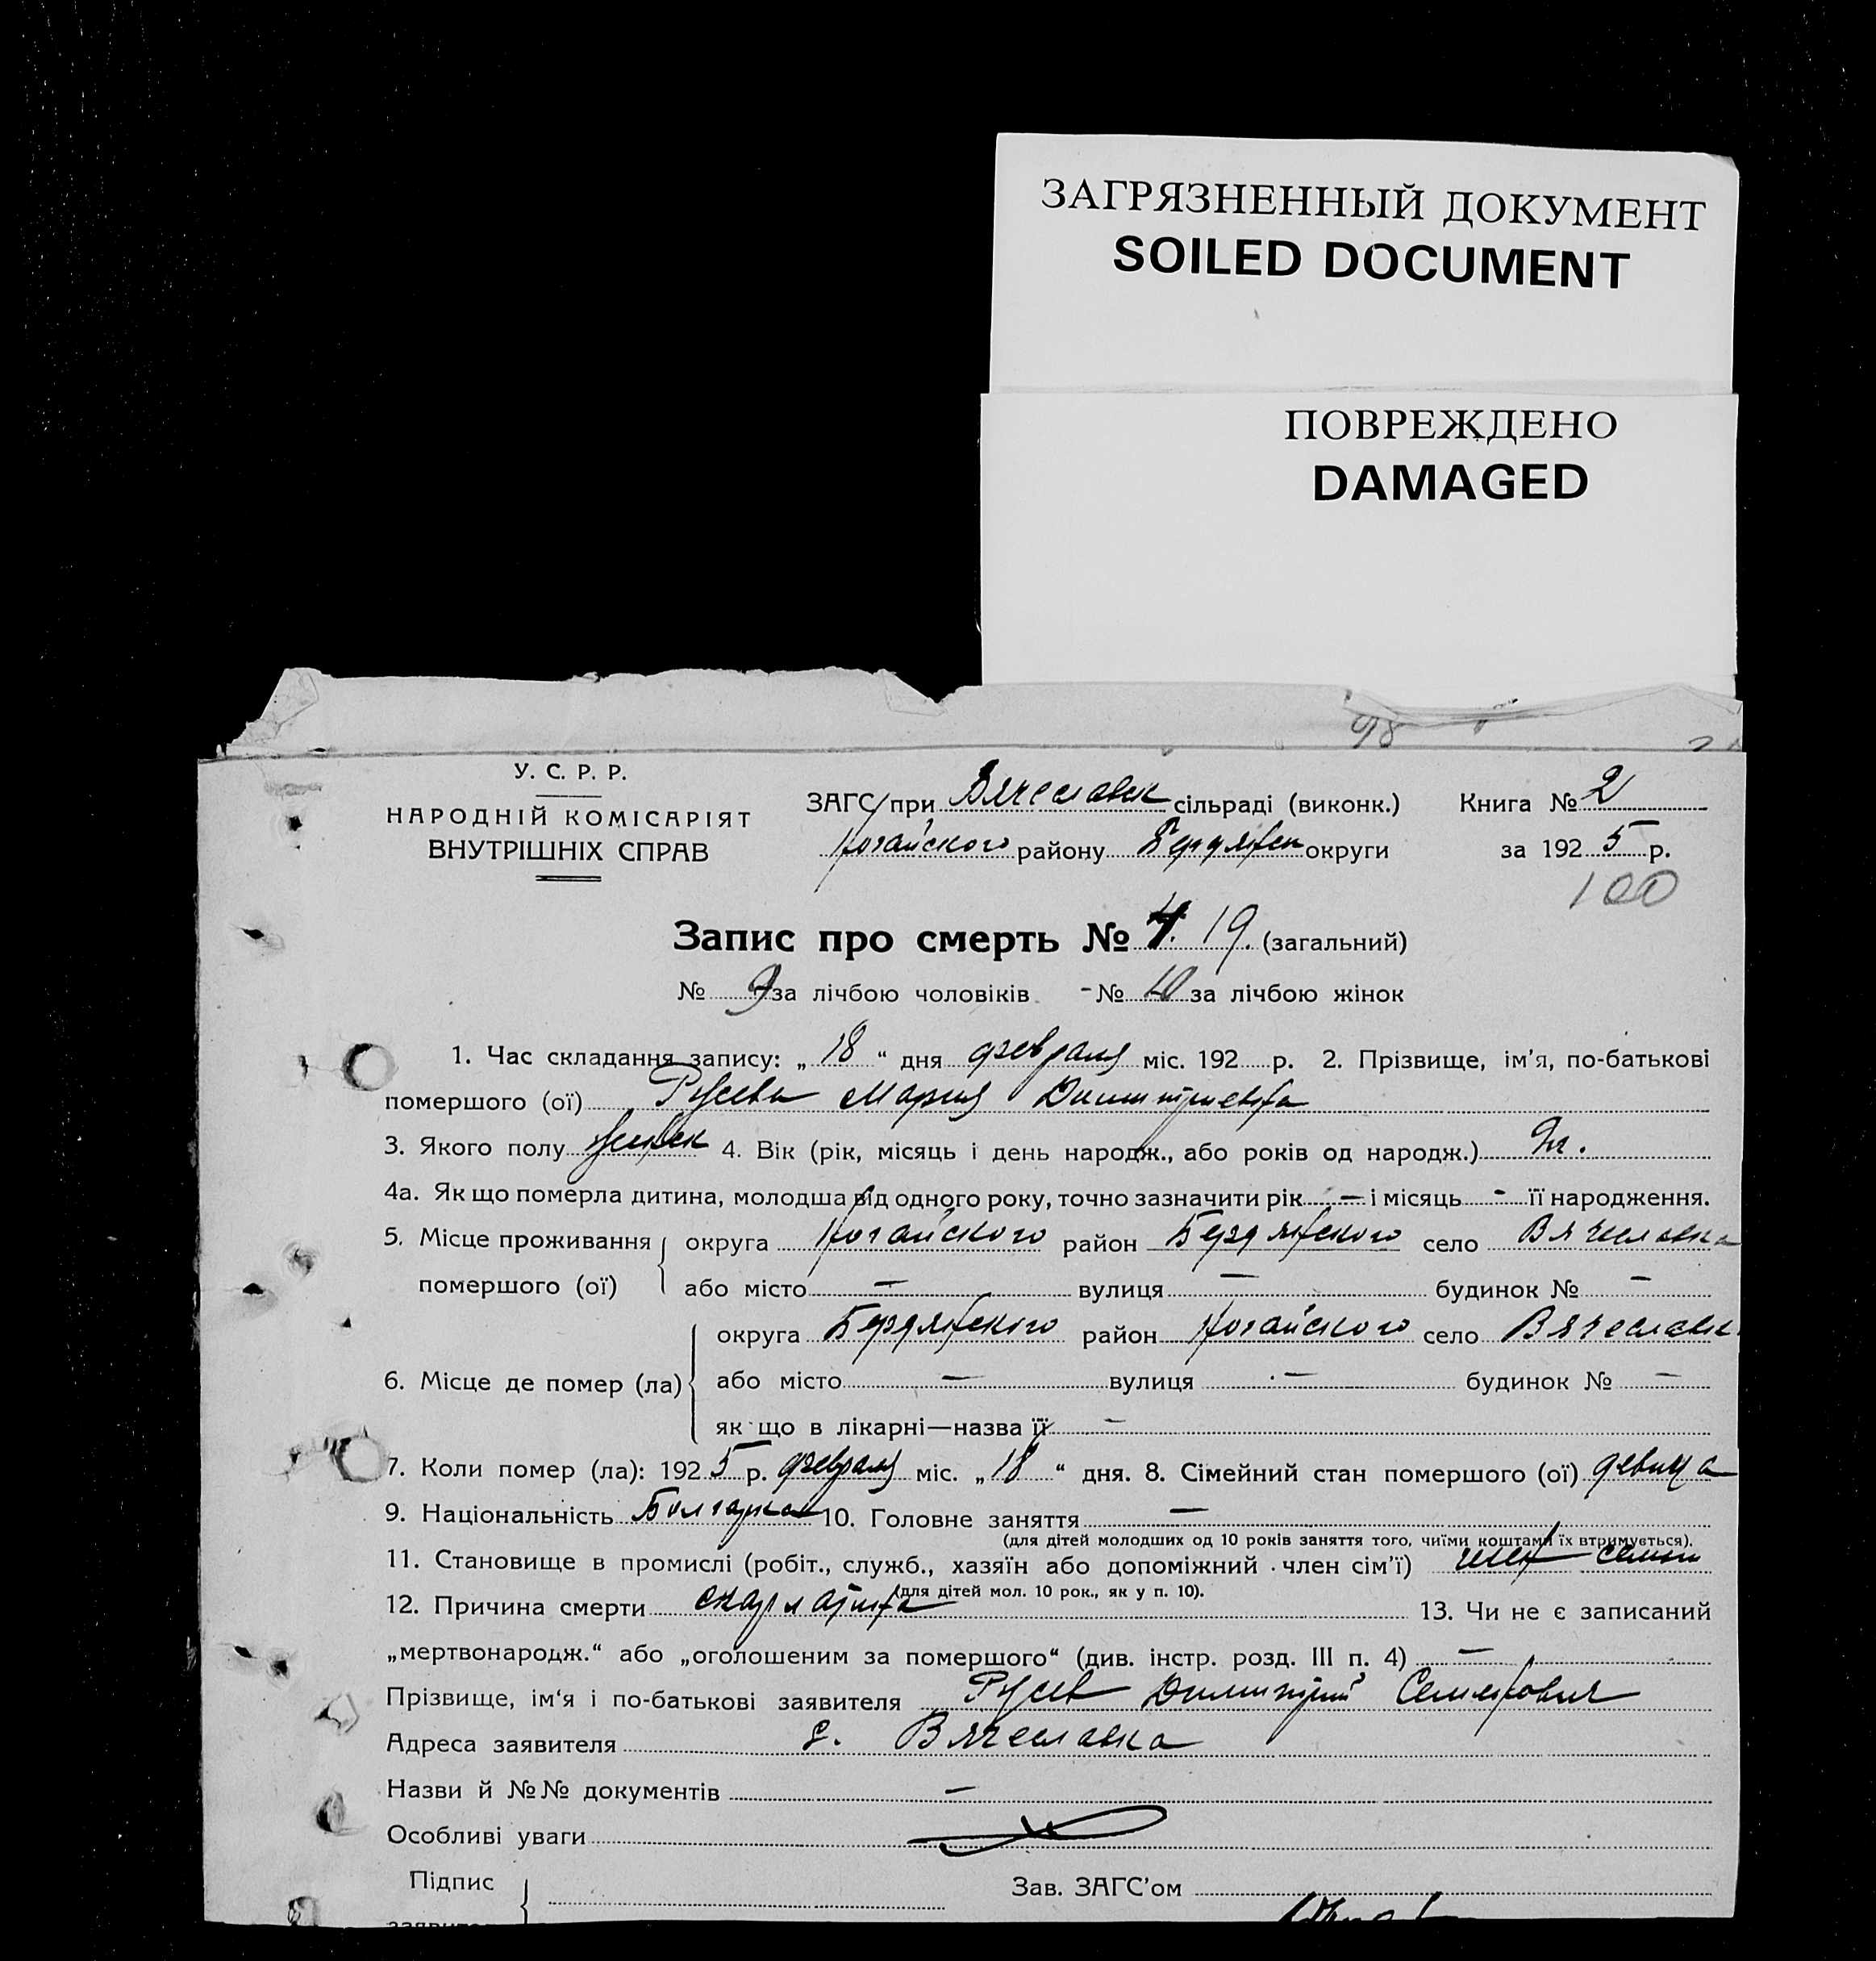 ЗАГРЯЗНЕННЫЙ ДОКУМЕНТ
SOILED DOCUMENT
ПОВРЕЖДЕНО
DAMAGED
98
У. С. Р. Р.
НАРОДНІЙ КОМІСАРІЯТ
ВНУТРІШНІХ СПРАВ
ЗАГС при Вячеславск сільраді (виконк.) Книга № 2
Ногайского району Бердянск округи за 1925 р.
100
Запис про смерть № 19. (загальний)
№ 9 за лічбою чоловіків - № 10 за лічбою жінок
1. Час складання запису: „ 18 “ дня февраля міс. 192 р. 2. Прізвище, ім'я, по-батькові
помершого (ої) Русева Мария Димитриевна
3. Якого полу женск 4. Вік (рік, місяць і день народж., або років од народж.)
4а. Як що померла дитина, молодша від одного року, точно зазначити рік — і місяць - її народження.
5. Місце проживання округа Ногайского район Бердянского село Вячеславка
помершого (ої) або місто — вулиця — будинок № —
округа Бердянского район Ногайского село Вячеславк
6. Місце де помер (ла) або місто — вулиця — будинок № —
як що в лікарні—назва її —
7. Коли помер (ла): 1925 р. февраля міс. „ 18 “ дня. 8. Сімейний стан помершого (ої) девица
9. Національність Болгарка 10. Головне заняття —
(для дітей молодших од 10 років заняття того, чиїми коштами їх втримується).
11. Становище в промислі (робіт., служб., хазяїн або допоміжний член сім'ї) член семьи
(для дітей мол. 10 рок., як у п. 10).
12. Причина смерти скарлатина 13. Чи не є записаний
„мертвонародж.“ або „оголошеним за помершого“ (див. інстр. розд. III п. 4) —
Прізвище, ім'я і по-батькові заявителя Русев Димитрий Семенович
Адреса заявителя с. Вячеславка
Назви й №№ документів —
Особливі уваги
Підпис Зав. ЗАГС'ом